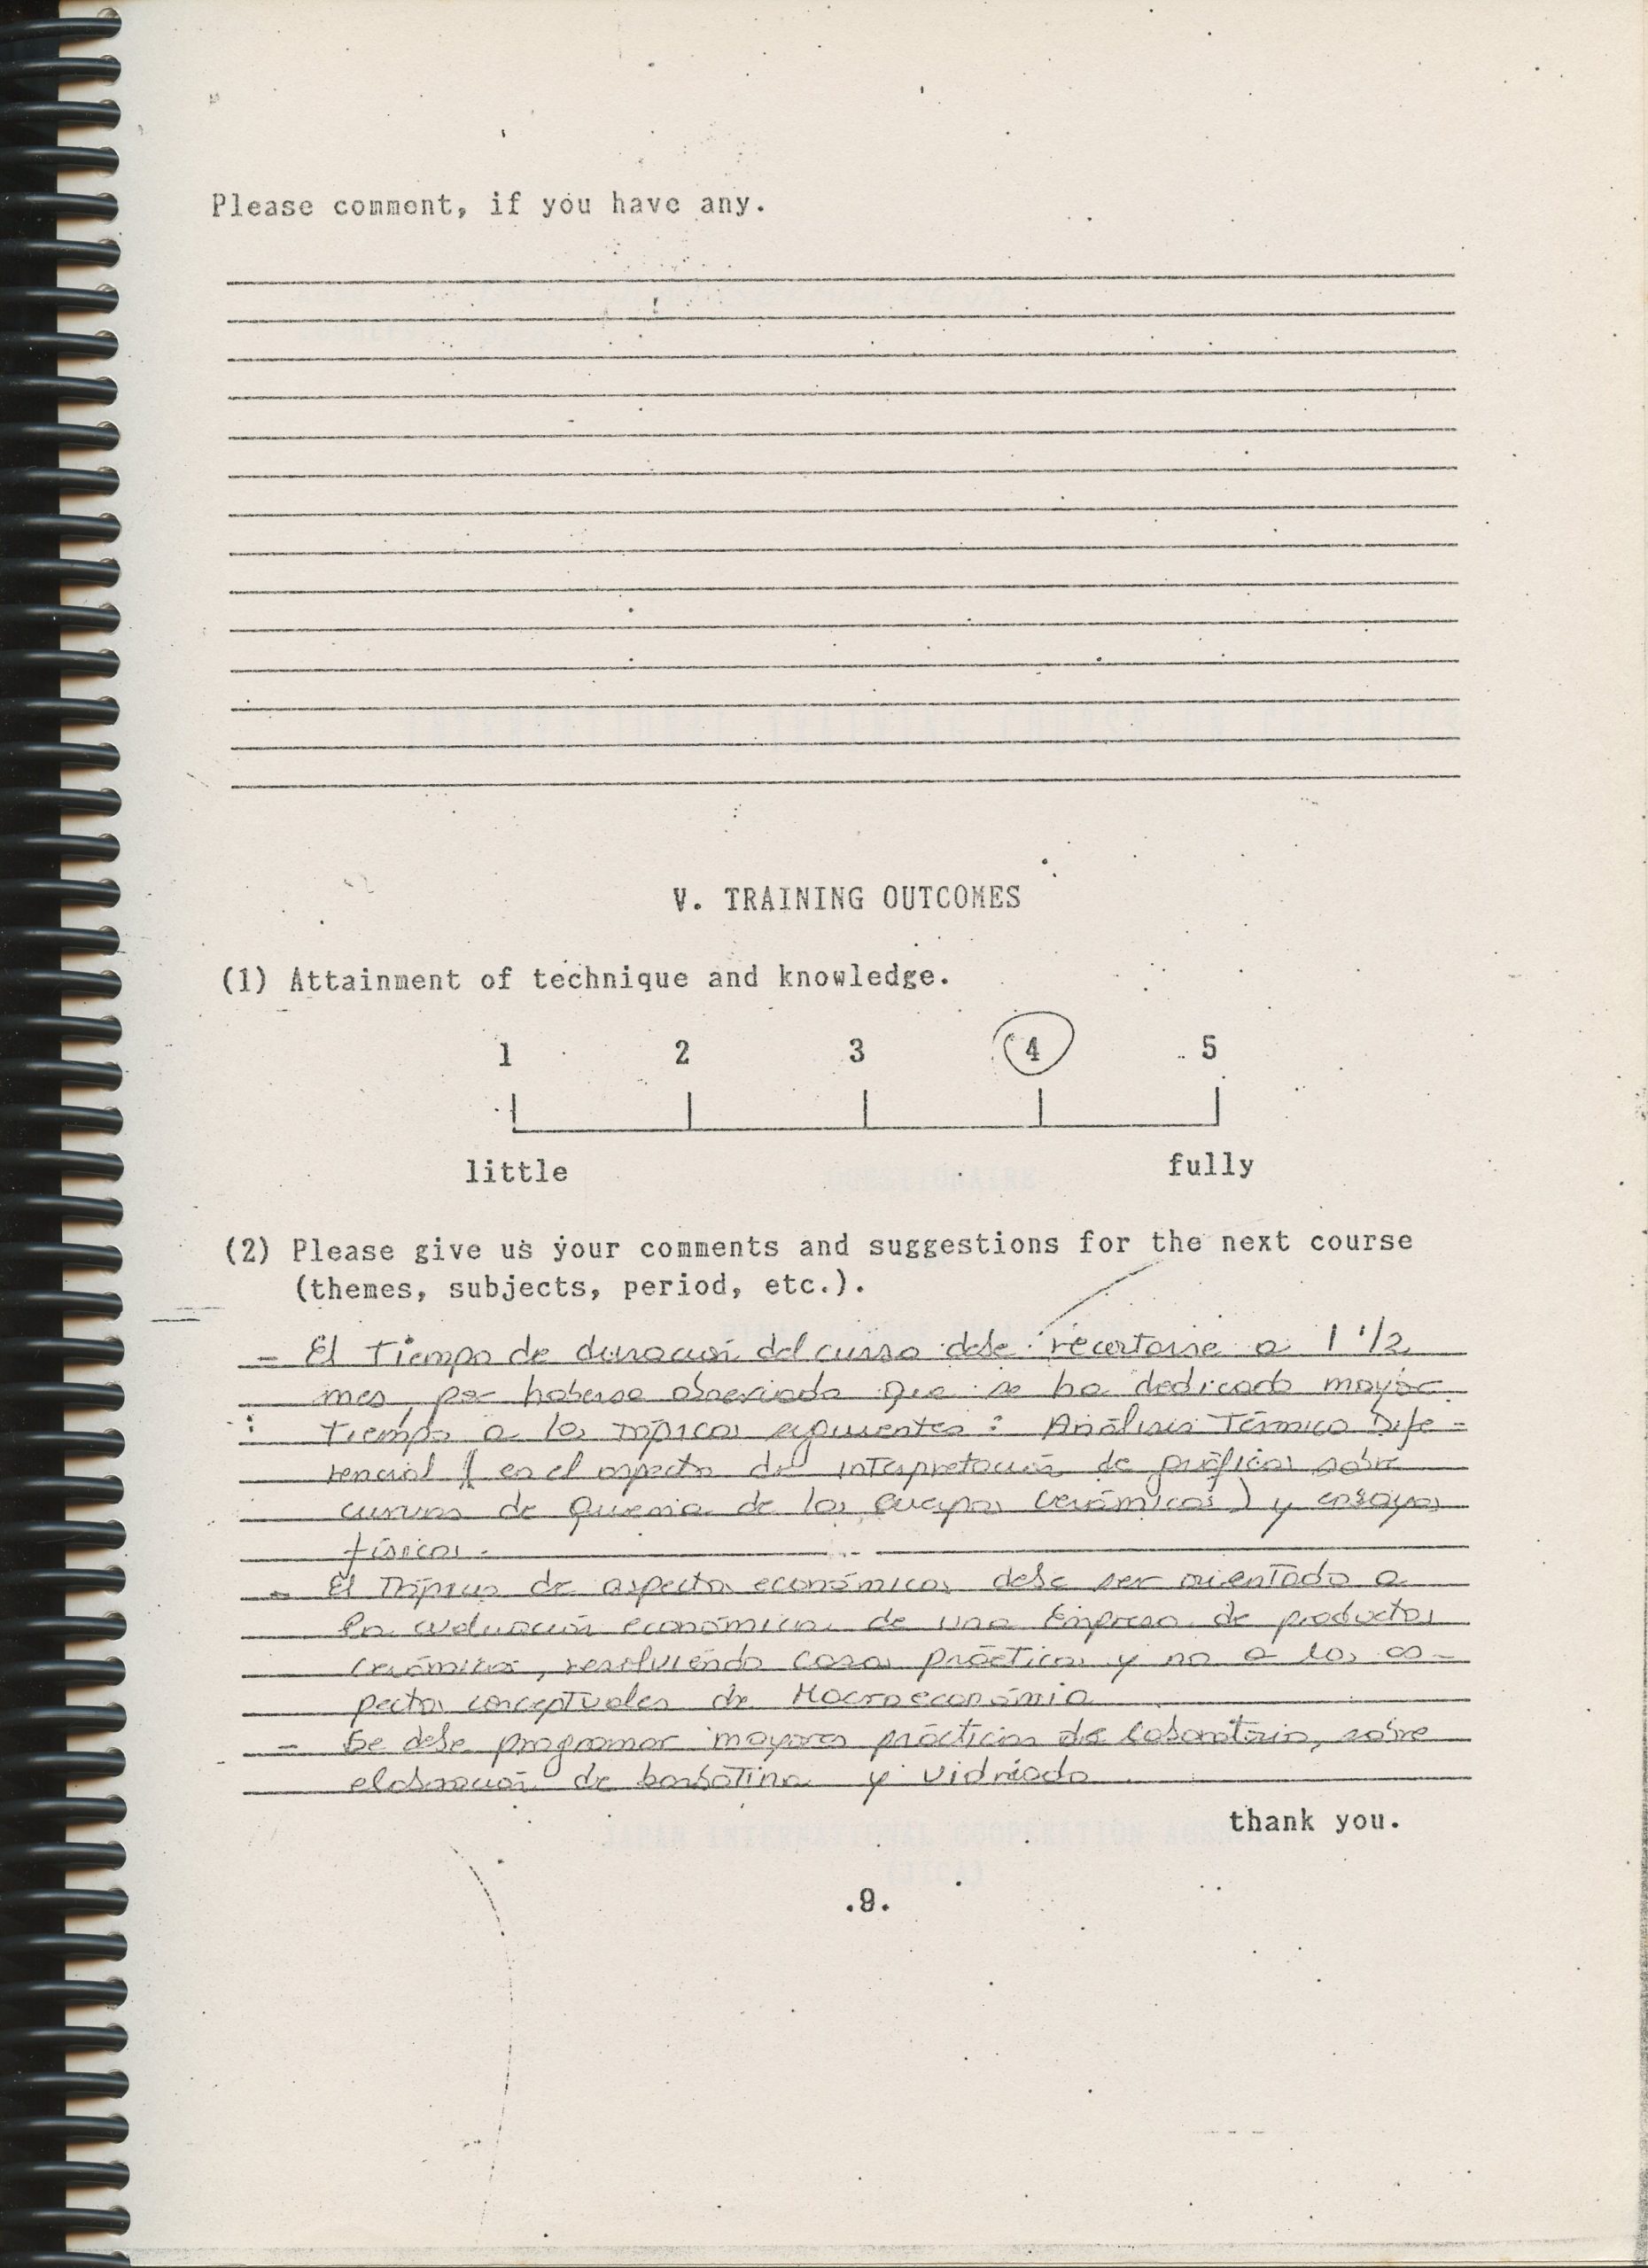 Please comment, if you have any.
V. TRAINING OUTCOMES
(1) Attainment of technique and knowledge.
1 2 3 4 5
little fully
(2) Please give us your comments and suggestions for the next course
(themes, subjects, period, etc.).
- El Tiempo de duración del curso debe recortarse a 1 1/2
mes, por haberse observado que se ha dedicado mayor
tiempo a los tópicos siguientes: Análisis Térmico Dife-
rencial (en el aspecto de interpretación de gráficos sobre
curvas de quema de los cuerpos cerámicos) y ensayos
físicos.
- El Tópico de aspectos económicos debe ser orientado a
la evaluación económica de una Empresa de productos
cerámicos, resolviendo casos prácticos y no a los as-
pectos conceptuales de Macroeconomía
- Se debe programar mayores prácticas de laboratorio, sobre
elaboración de barbotina y vidriado
thank you.
.9.